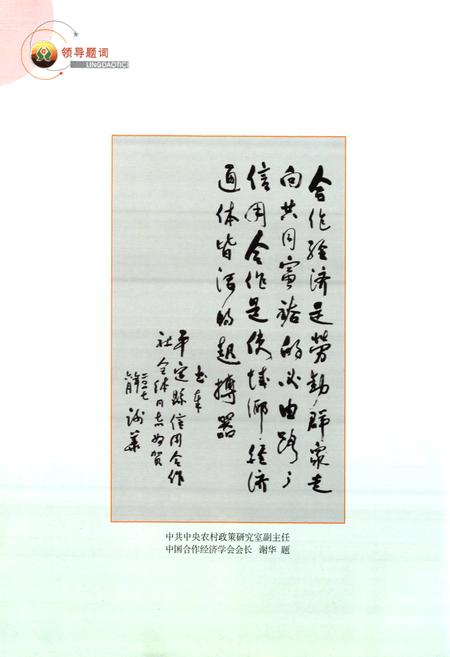 领导题词
LINGDAOTICI
合作经济是劳动群众走
向共同富裕的必由路,
信用合作是使城乡经济
通体皆活的起搏器
书奉
平定县信用合作
社全体同志为贺
谢华
中共中央农村政策研究室副主任
中国合作经济学会会长 谢华 题